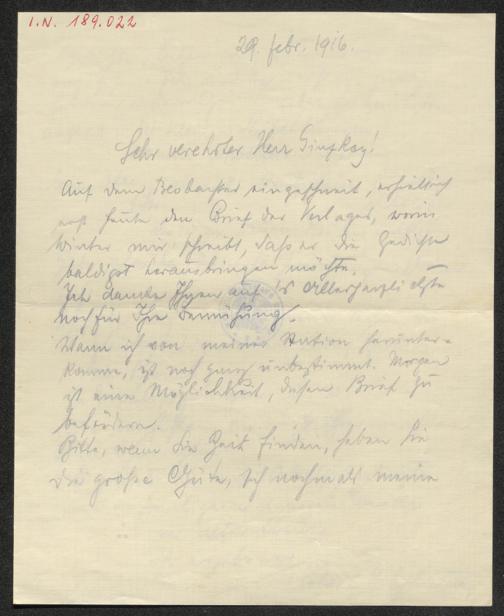 I.N. 189.022
29. Febr. 1916.
Sehr verehrter Herr Ginzkey!
Auf dem Beobachter eingeschneit, erhielt ich
erst heute den Brief des Verlages, worin
Winter mir schreibt, daß er die Gedichte
baldigst herausbringen möchte.
Ich danke Ihnen auf's Allerherzlichste
noch für Ihre Bemühung.
Wann ich von meiner Station herunter-
komme, ist noch ganz unbestimmt. Morgen
ist eine Möglichkeit, diesen Brief zu
befördern.
Bitte, wenn Sie Zeit finden, haben Sie
die große Güte, sich nochmals meine